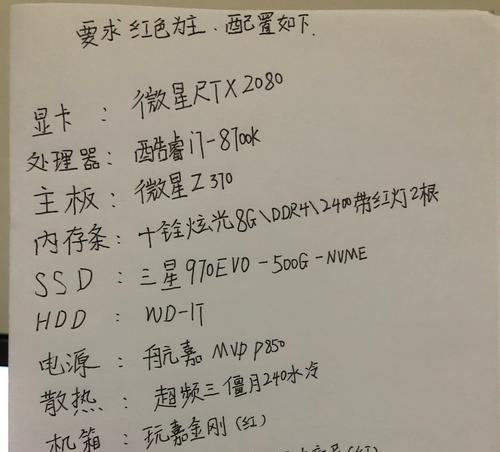 要求红色为主.配置如下.
显卡：微星RTX2080
处理器：酷睿i7-8700k
主板：微星Z370
内存条：十铨炫光8G\DDR4\2400带红灯2根
SSD：三星970EVO-500G-NVME
HDD：WD-1T
电源：航嘉MVP P850
散热：超频三僵月240水冷
机箱：玩嘉金刚(红)